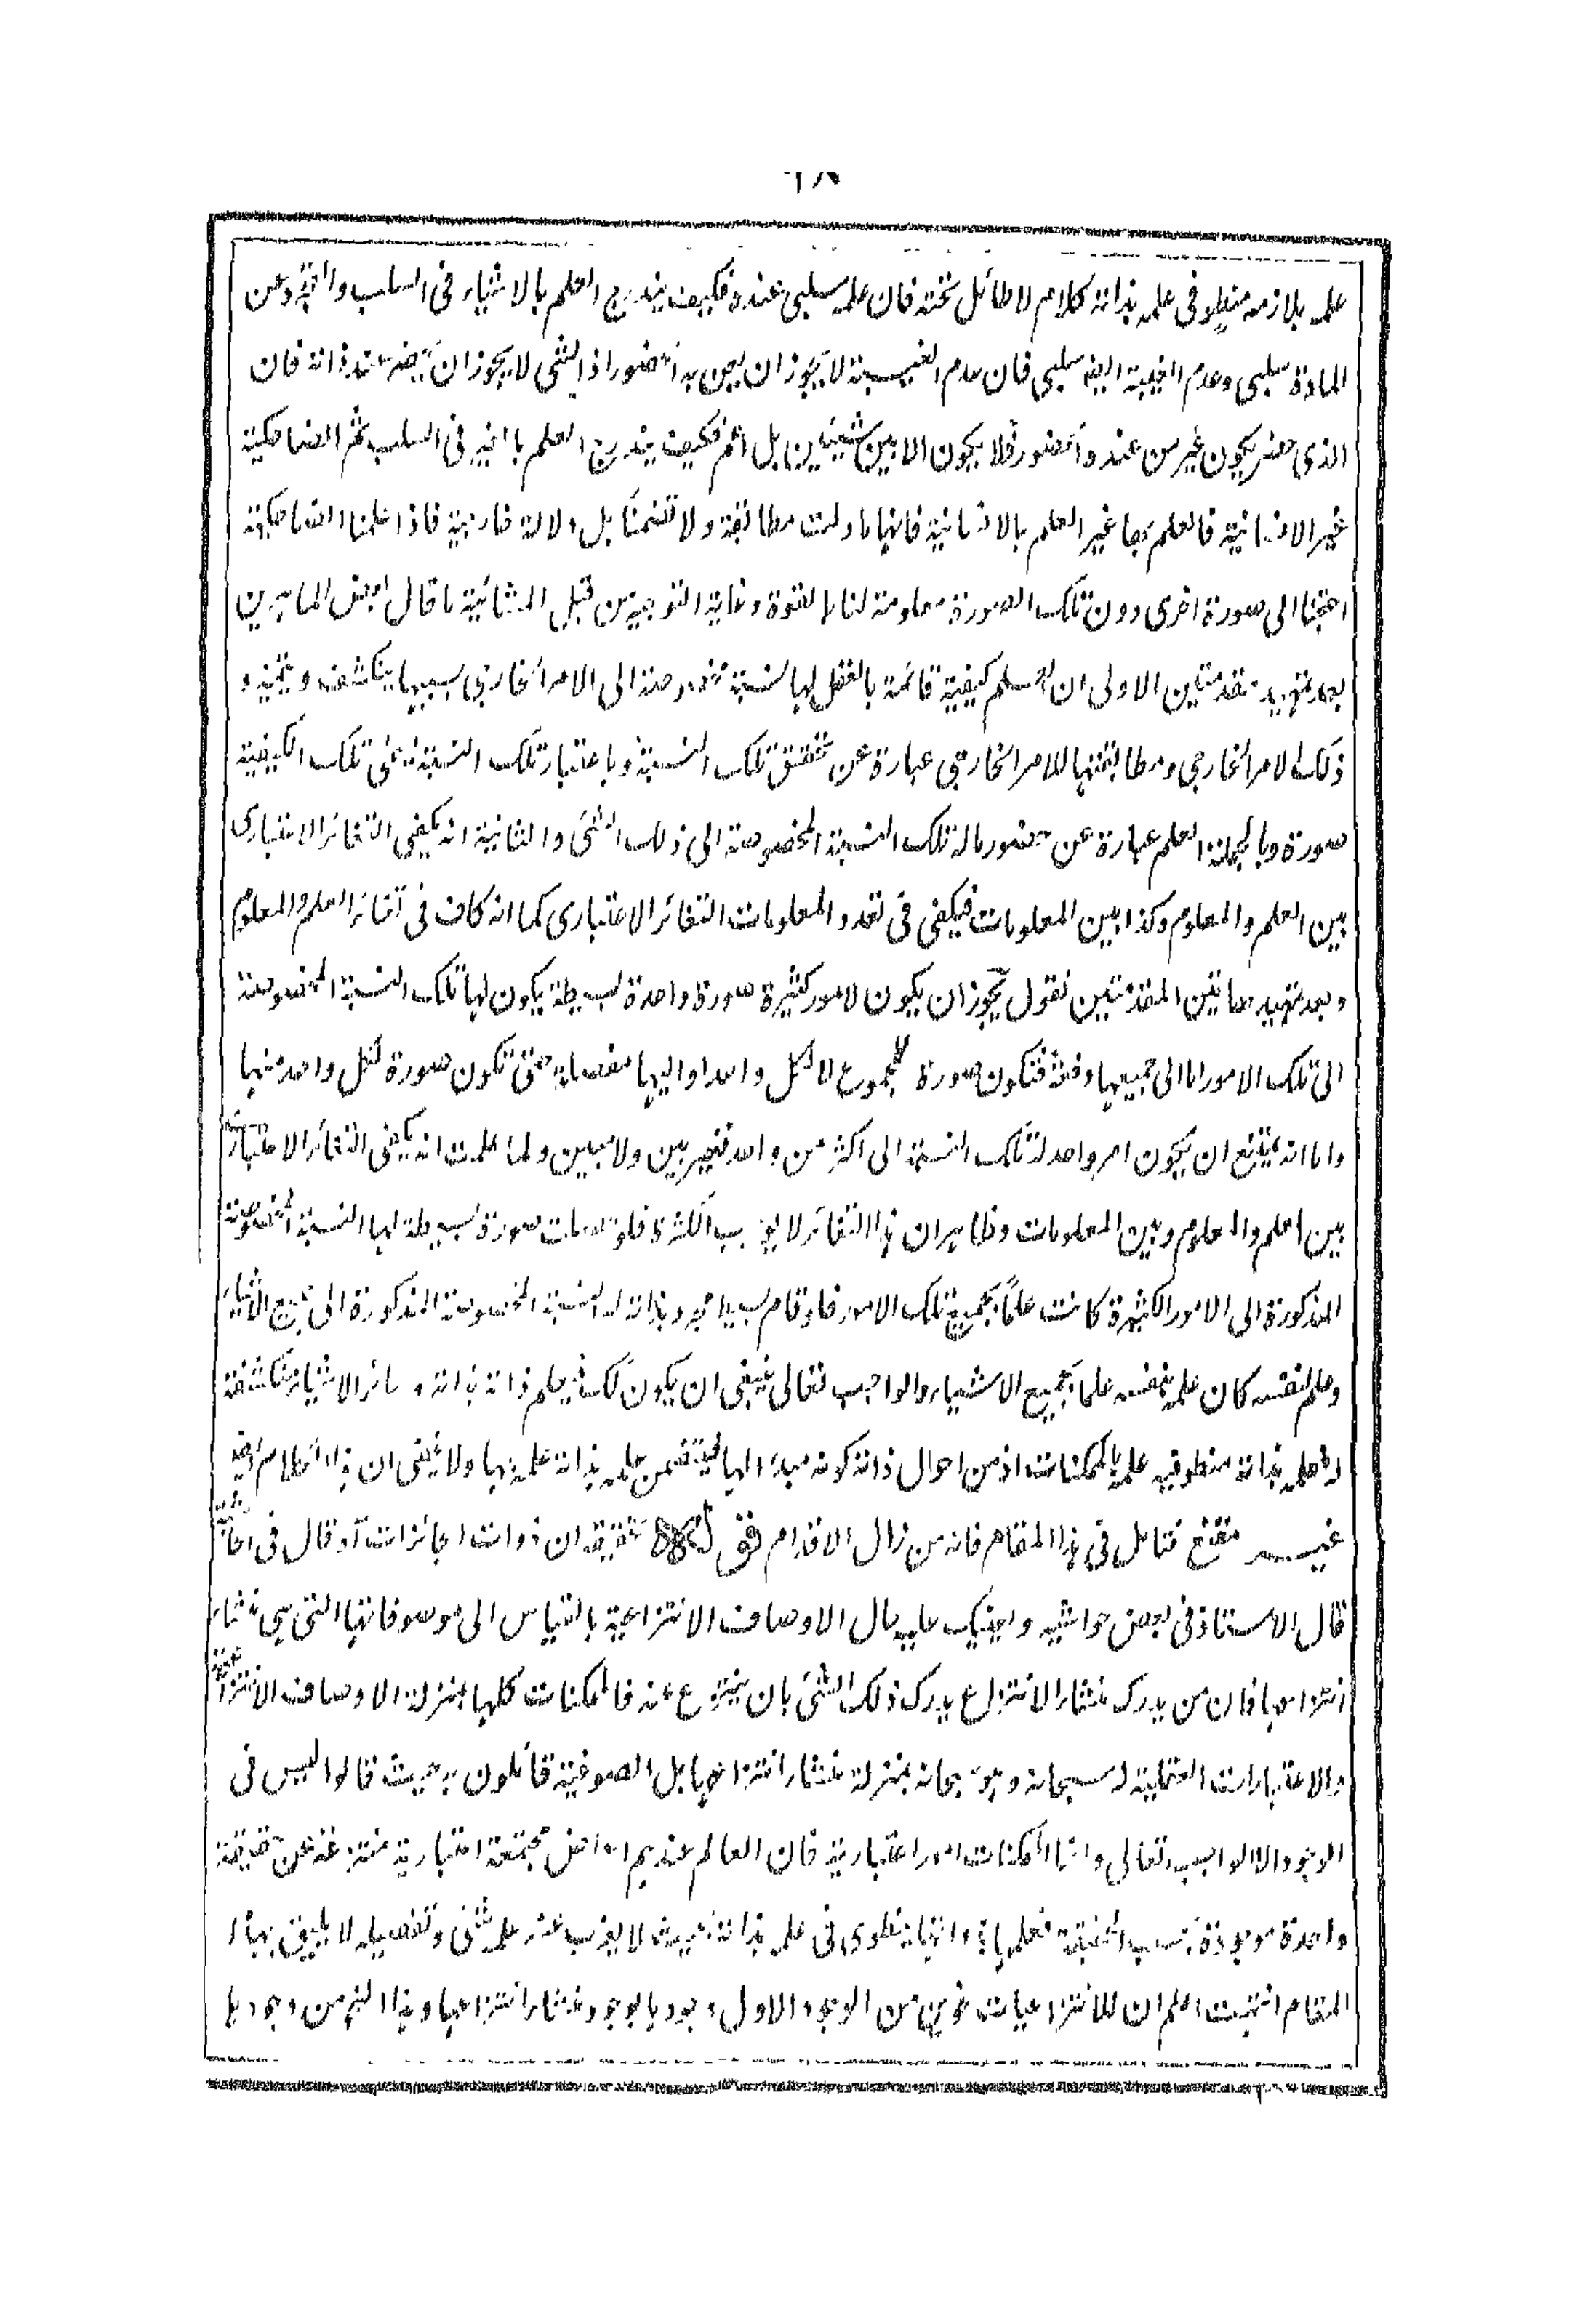 علمه بلازمه منطو في علمه بذاته كلام لا طائل تحته فان علمه سلبي عنده فكيف يندرج العلم بالاشياء في السلب والتجرد عن
المادة سلبي وعدم الغيبة ايضا سلبي فان عدم الغيبة لا يجوز ان يعني به الحضور اذ الشئ لا يجوز ان يحضر عند ذاته فان
الذي حضر يكون غير من عنده الحضور فلا يكون الا بين شيئين بل اثم فكيف يندرج العلم بالغير في السلب ثم الضاحكية
غير الانسانية فالعلم بها غير العلم بالانسانية فانها ما دلت مطابقة ولا تضمنا بل دلالة خارجية فاذا علمنا الضاحكية
احتجنا الى صورة اخرى دون تلك الصورة معلومة لنا بالقوة وغاية التوجيه من قبل المشائية ما قال بعض الماهرين
بعد تمهيد مقدمتين الاولى ان العلم كيفية قائمة بالعقل لها نسبة مخصوصة الى الامر الخارجي بسببها ينكشف ويتميز و
ذلك الامر الخارجي ومطابقتها للامر الخارجي عبارة عن تحقق تلك النسبة وباعتبار تلك النسبة تسمى تلك الكيفية
صورة وبالجملة العلم عبارة عن حضور ما له تلك النسبة المخصوصة الى ذلك الشئ والثانية انه يكفي التغائر الاعتباري
بين العلم والمعلوم وكذا بين المعلومات فيكفي في تعدد المعلومات التغائر الاعتباري كما انه كاف في تغائر العلم والمعلوم
وبعد تمهيد هاتين المقدمتين نقول يجوز ان يكون لامور كثيرة صورة واحدة بسيطة يكون لها تلك النسبة المخصوصة
الى تلك الامور اما الى جميعها دفعة فتكون صورة للمجموع لا لكل واحد او اليها مفصلة حتى تكون صورة لكل واحد منها
واما انه يمتنع ان يكون امر واحد له تلك النسبة الى اكثر من واحد فغير بين ولا مبين ولما علمت انه يكفي التغائر الاعتباري
بين العلم والمعلوم وبين المعلومات وظاهر ان هذا التغائر لا يوجب الكثرة فلو حصلت صورة بسيطة لها النسبة المخصوصة
المذكورة الى الامور الكثيرة كانت علما بجميع تلك الامور فلو قام بسيط مجرد بذاته له النسبة المخصوصة المذكورة الى جميع الاشياء
وعلم لنفسه كان علمه بنفسه علما بجميع الاشياء والواجب تعالى ينبغي ان يكون كذلك فيعلم ذاته بذاته وسائر الاشياء منكشفة
له فعلمه بذاته منطو فيه علمه بالممكنات اذ من احوال ذاته كونه مبدء لها فيتضمن علمه بذاته علمه بها ولا يخفى ان هذا الكلام ايضا
غير مقنع فتامل في هذا المقام فانه من زال الاقدام قوله تحقيقه ان ذوات الجائزات آه قال في الحاشية
قال الاستاذ في بعض حواشيه ويعينك عليه حال الاوصاف الانتزاعية بالقياس الى موصوفاتها التي هي منشاء
انتزاعها فان من يدرك منشاء الانتزاع يدرك ذلك الشئ بان ينتزع عنه فالممكنات كلها بمنزلة الاوصاف الانتزاعية
والاعتبارات العقلية له سبحانه وهو سبحانه بمنزلة منشاء انتزاعها بل الصوفية قائلون به حيث قالوا ليس في
الوجود الا الواجب تعالى وانما الممكنات امور اعتبارية فان العالم عندهم اعراض مجتمعة اعتبارية منتزعة عن حقيقة
واحدة موجودة بحسب الحقيقة فعلمها انما ينطوي في علمه بذاته بحيث لا يعزب عن علمه شئ وتفصيله لا يليق بهذا
المقام انتهت اعلم ان للانتزاعيات نحوين من الوجود الاول وجودها بوجود منشاء انتزاعها وهذا النحو من وجودها